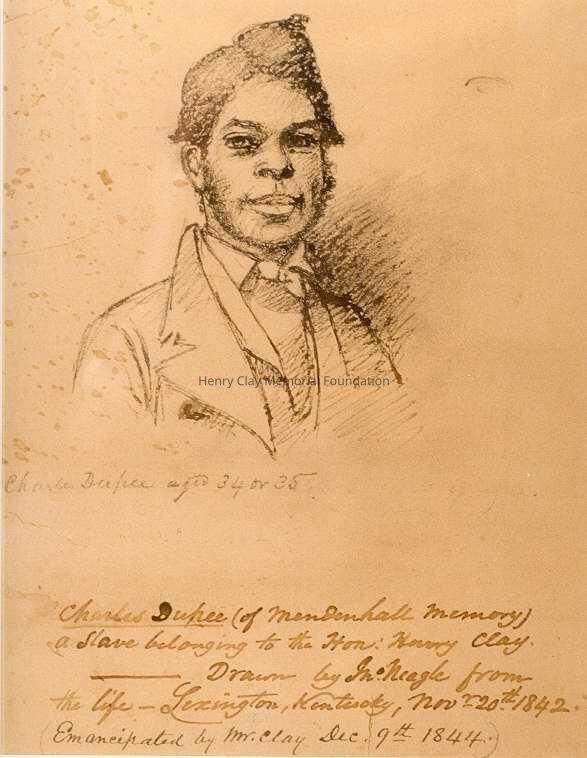 Henry Clay Memorial Foundation
Charles Dupee aged 34 or 35
Charles Dupee (of Mendenhall Memory)
a Slave belonging to the Hon: Henry Clay.
——— Drawn by Jno Neagle from
the life – Lexington, Kentucky, Novr 20th 1842.
(Emancipated by Mr. Clay Dec. 9th 1844.)